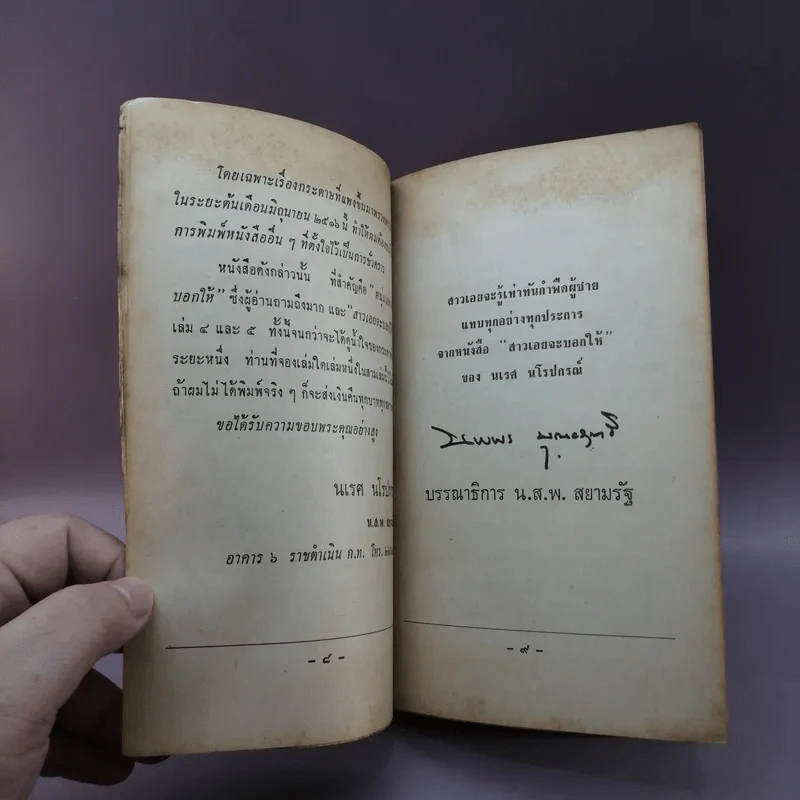 โดยเฉพาะเรื่องกระดาษที่แพงขึ้นมาพรวดพราด
ในระยะต้นเดือนมิถุนายน ๒๕๑๖ นี้ ทำให้ผมต้อง
การพิมพ์หนังสืออื่น ๆ ที่ตั้งใจไว้เป็นการชั่วคราว
หนังสือดังกล่าวนั้น ที่สำคัญคือ "หนุ่ม
บอกให้" ซึ่งผู้อ่านถามถึงมาก และ "สาวเอยจะบอกให้
เล่ม ๔ และ ๕ ทั้งนี้จนกว่าจะได้ดูน้ำใจของกระดาษ
ระยะหนึ่ง ท่านที่จองเล่มใดเล่มหนึ่งในสามเล่มนี้ไว้
ถ้าผมไม่ได้พิมพ์จริง ๆ ก็จะส่งเงินคืนทุกบาททุก
ขอได้รับความขอบพระคุณอย่างสูง
นเรศ นโรปกรณ์
น.ส.พ.
อาคาร ๖ ราชดำเนิน ก.ท. โทร.
– ๘ –
สาวเอยจะรู้เท่าทันกำพืดผู้ชาย
แทบทุกอย่างทุกประการ
จากหนังสือ "สาวเอยจะบอกให้"
ของ นเรศ นโรปกรณ์
บรรณาธิการ น.ส.พ. สยามรัฐ
– ๙ –